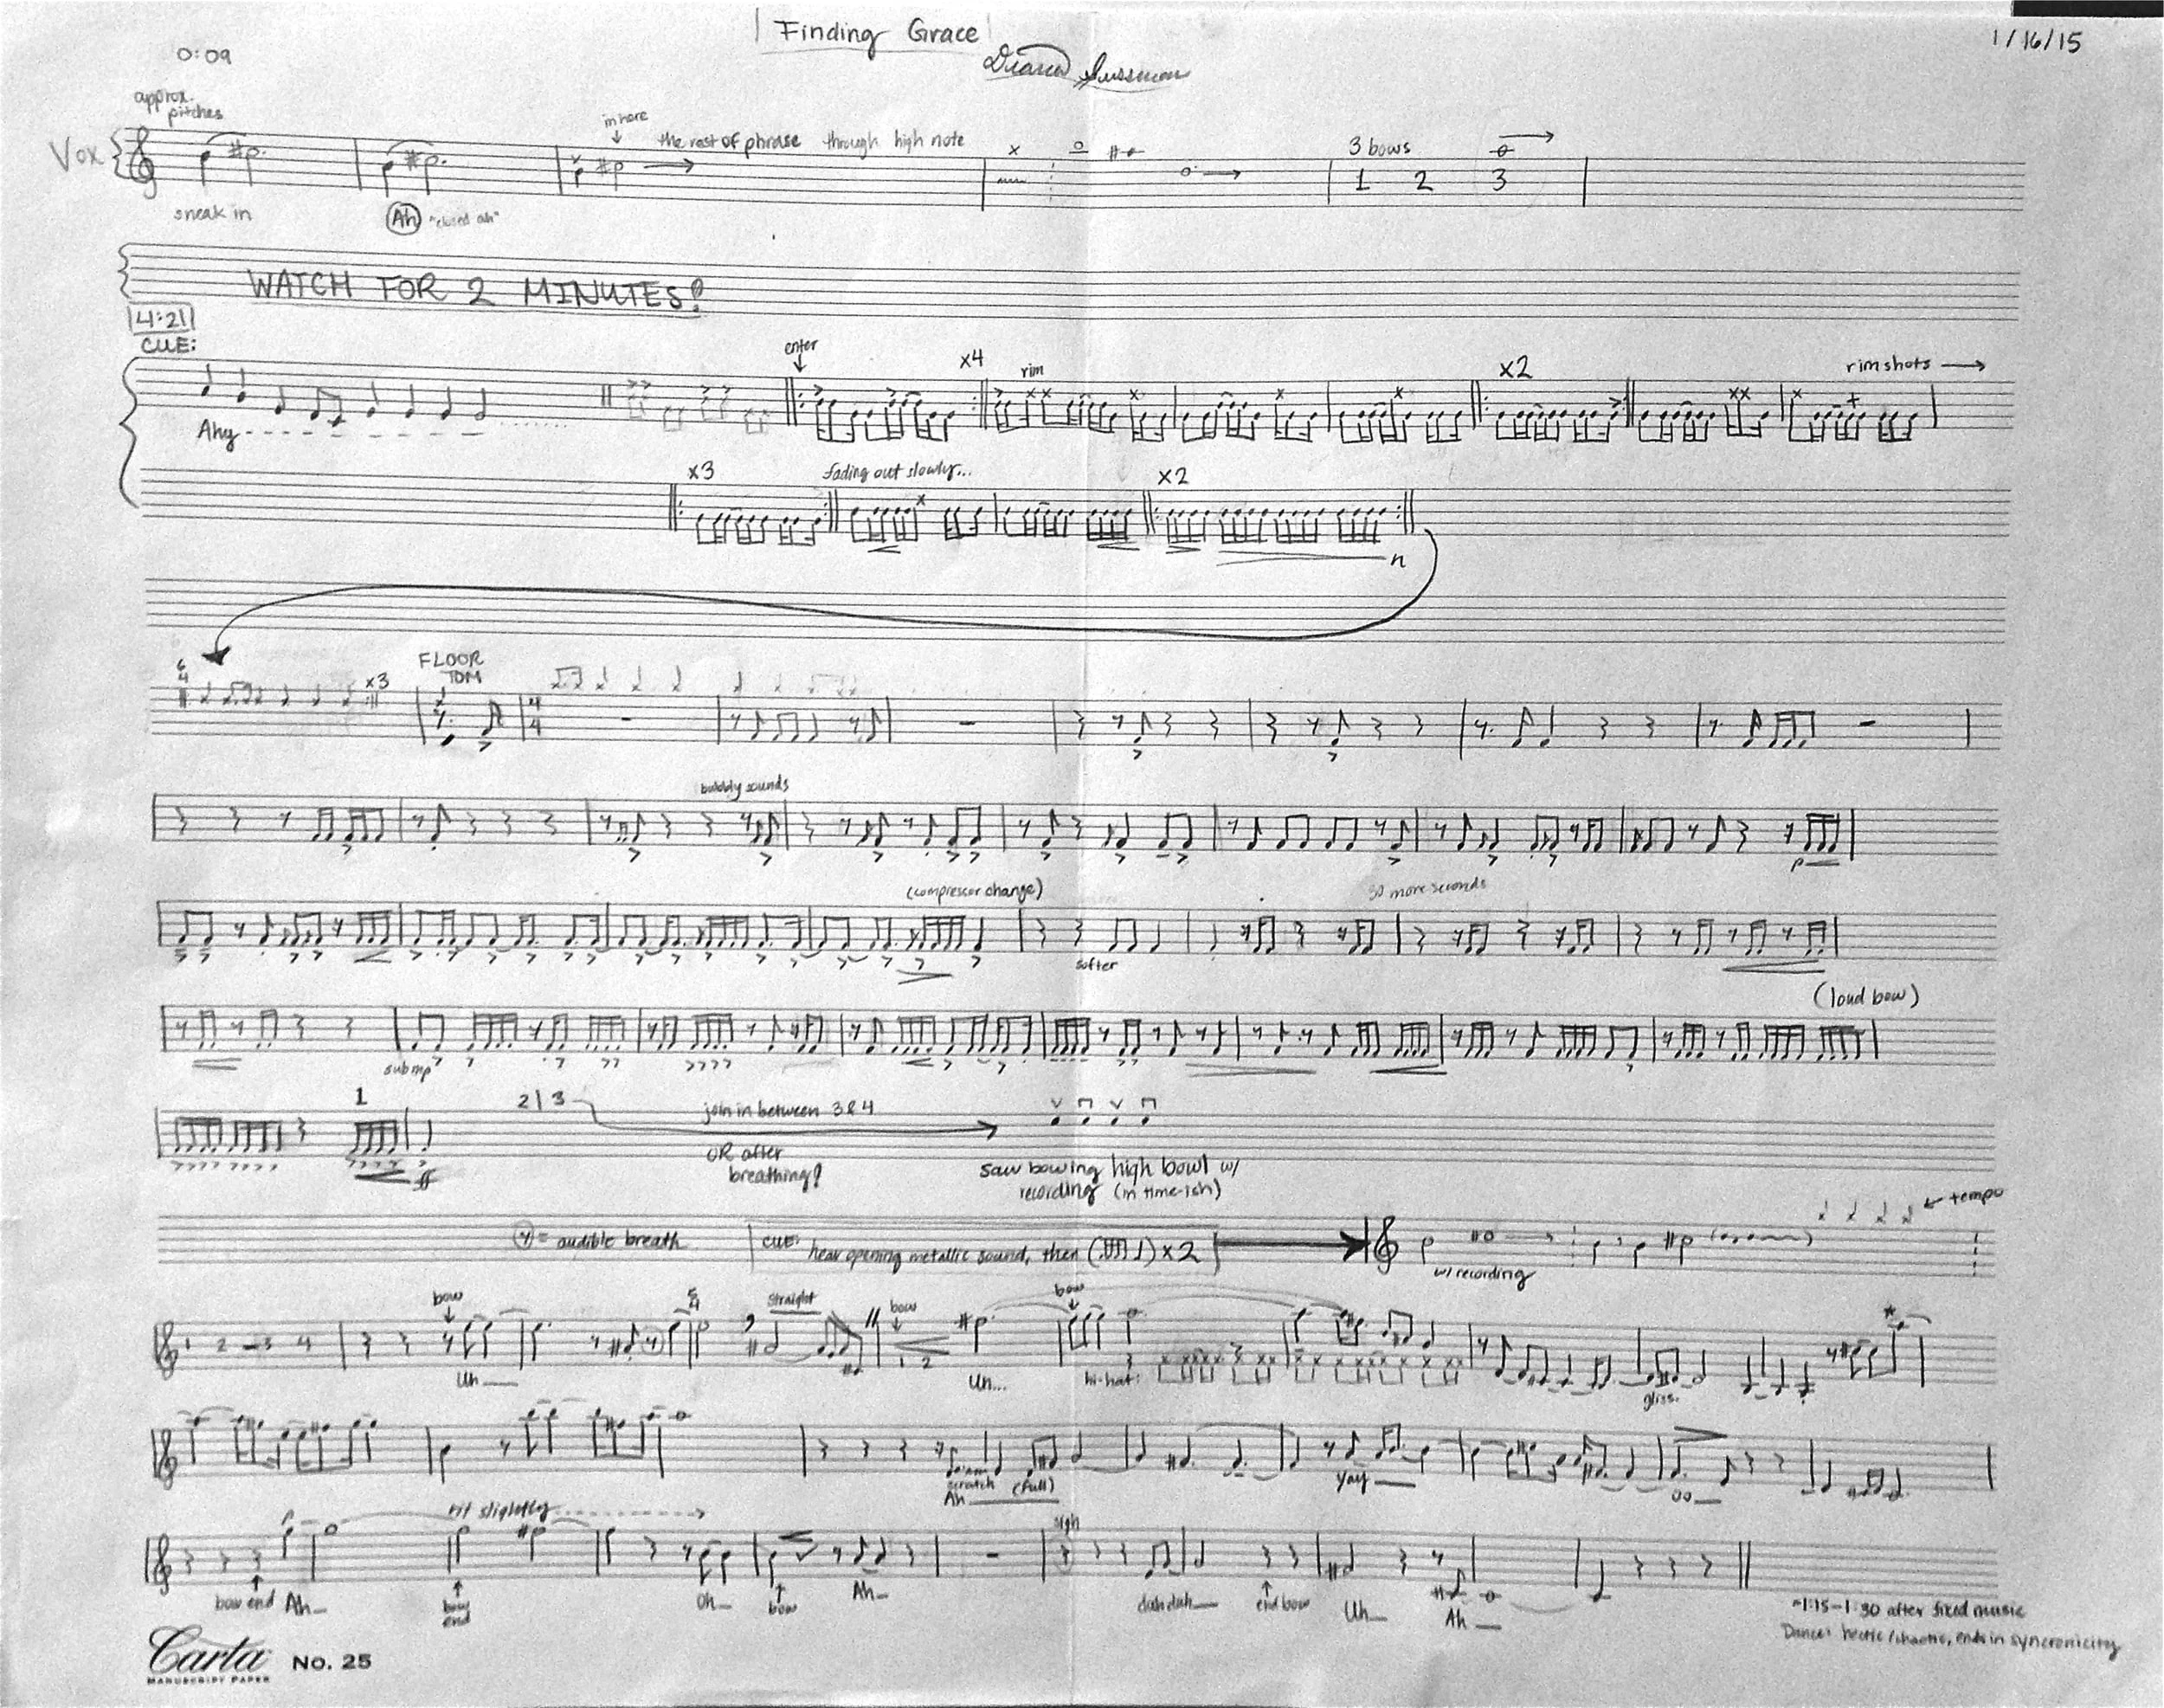 Finding Grace
0:09
1/16/15
approx. pitches
in here
Vox
the rest of phrase through high note
3 bows
1 2 3
sneak in
Ah "closed ah"
WATCH FOR 2 MINUTES!
4:21
CUE:
enter
x4
rim
x2
rimshots
Ahy
x3
fading out slowly...
x2
n
6/4
x3
FLOOR TOM
4/4
bubbly sounds
p
(compressor change)
30 more seconds
softer
(loud bow)
sub mp
1
2 | 3
join in between 3 & 4
OR after breathing?
ff
saw bowing high bowl w/ recording (in time-ish)
tempo
= audible breath
CUE: hear opening metallic sound, then ( ) x2
w/ recording
bow
5/4
straight
bow
bow
1 2 3 4
1 2
Uh
Un...
hi-hat:
gliss.
scratch (full)
Ah
Yay
oo
rit slightly
sigh
bow end Ah
bow end
Oh
bow
Ah
dah dah
end bow
Uh
Ah
~1:15-1:30 after fixed music
Dance: hectic/chaotic, ends in syncronicity
Carta No. 25
MANUSCRIPT PAPER